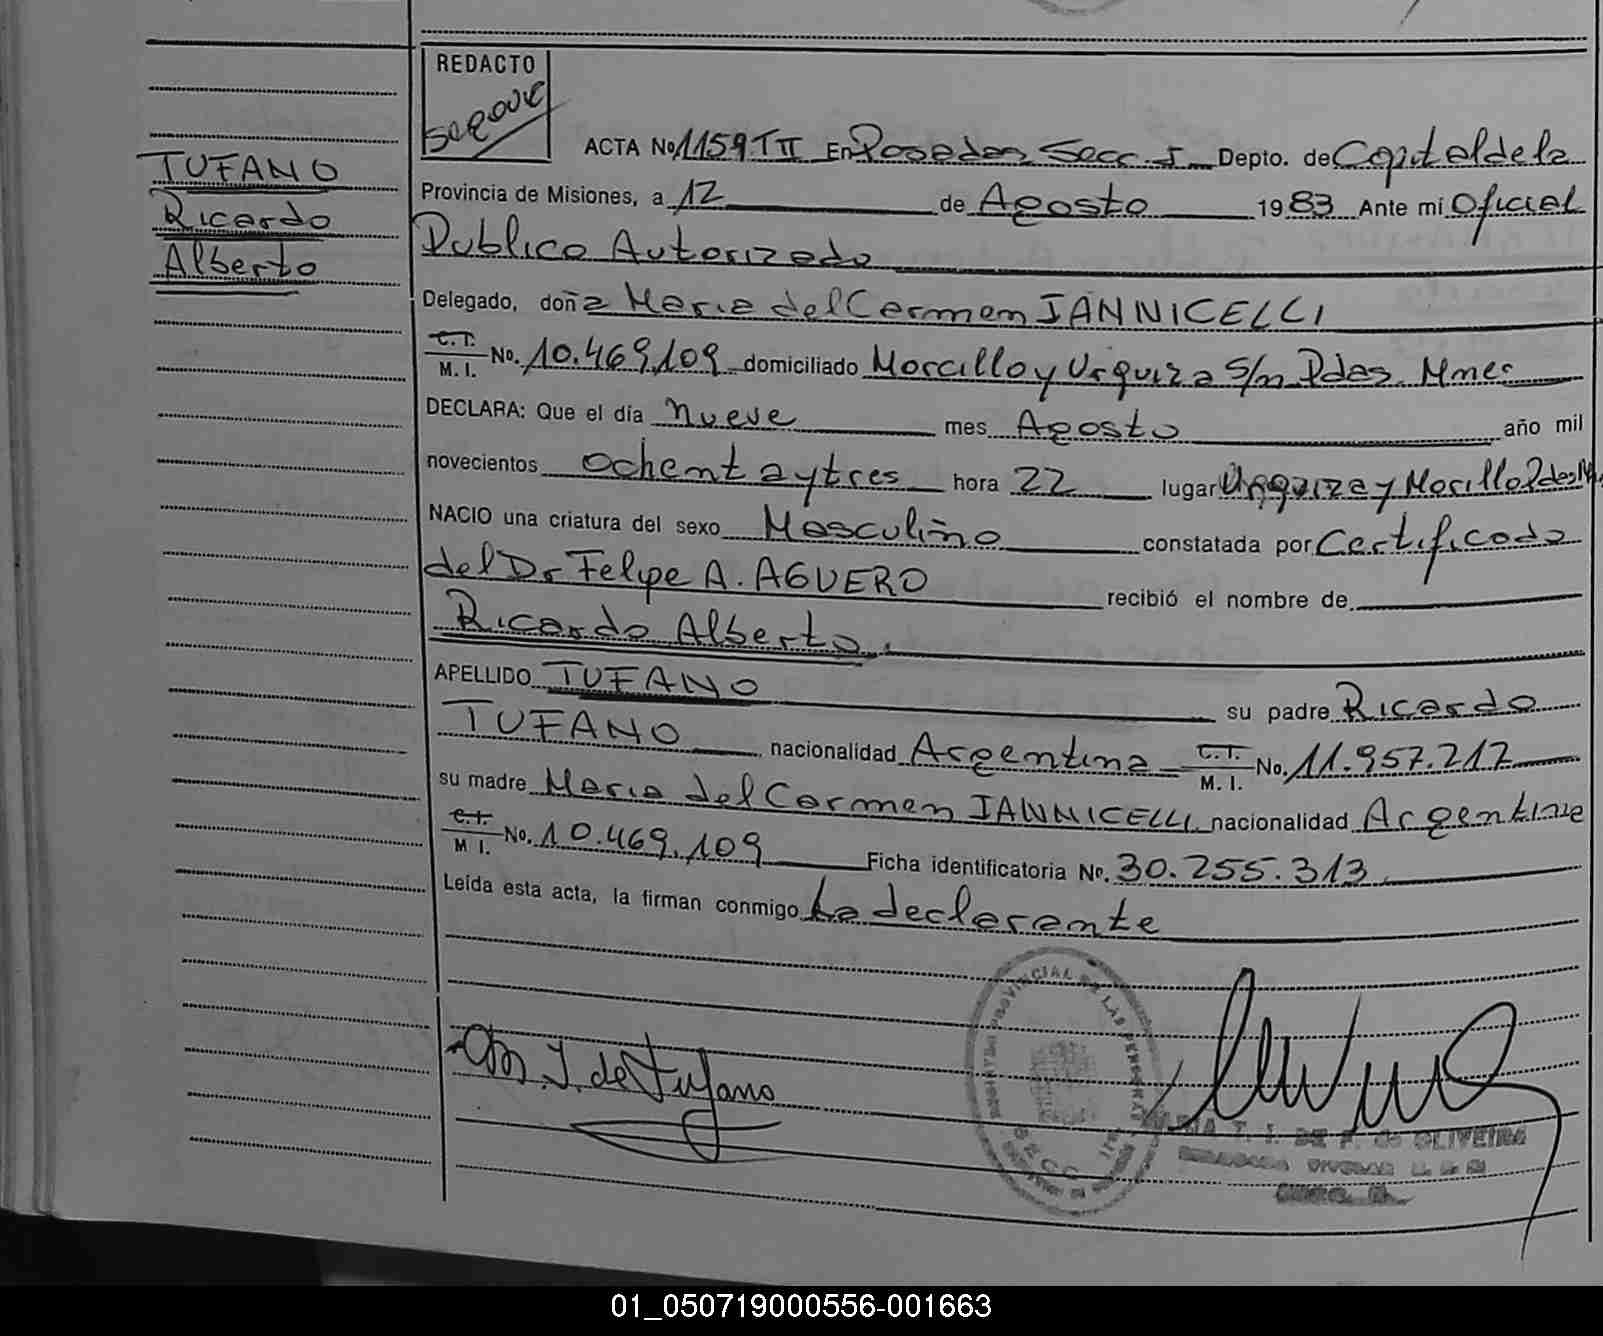 REDACTO
TUFANO
Ricardo
Alberto
ACTA No 1159 TII En Posadas Secc. I Depto. de Capital de la
Provincia de Misiones, a 12 de Agosto 1983 Ante mi Oficial
Publico Autorizado
Delegado, doña Maria del Carmen IANNICELLI
C.T. M. I. No. 10.469.109 domiciliado Morcillo y Urquiza S/n Pdas. Mnes
DECLARA: Que el día nueve mes Agosto año mil
novecientos ochenta y tres hora 22 lugar Urquiza y Morillo Pdas
NACIO una criatura del sexo Masculino constatada por Certificado
del Dr Felipe A. AGUERO recibió el nombre de
Ricardo Alberto.
APELLIDO TUFANO su padre Ricardo
TUFANO nacionalidad Argentina C.T. M. I. No. 11.957.217
su madre Maria del Carmen IANNICELLI nacionalidad Argentina
C.T. M I. No. 10.469.109 Ficha identificatoria No. 30.255.313
Leída esta acta, la firman conmigo La declarante
J. de Tufano
PROVINCIAL DE LAS PERSONAS
T. I. DE F. de OLIVEIRA
01_050719000556-001663